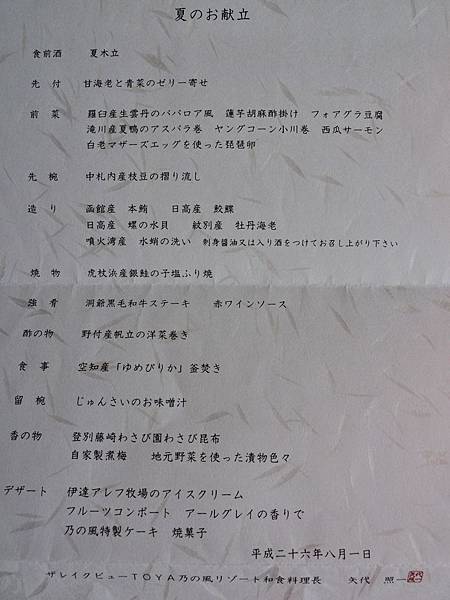 夏のお献立
食前酒 夏木立
先付 甘海老と青菜のゼリー寄せ
前菜 羅臼産生雲丹のババロア風 蓮芋胡麻酢掛け フォアグラ豆腐
滝川産夏鴨のアスパラ巻 ヤングコーン小川巻 西瓜サーモン
白老マザーズエッグを使った琵琶卵
先椀 中札内産枝豆の摺り流し
造り 函館産 本鮪 日高産 鮫鰈
日高産 螺の水貝 紋別産 牡丹海老
噴火湾産 水蛸の洗い 刺身醤油又は入り酒をつけてお召し上がり下さい
焼物 虎杖浜産銀鮭の子塩ふり焼
強肴 洞爺黒毛和牛ステーキ 赤ワインソース
酢の物 野付産帆立の洋菜巻き
食事 空知産「ゆめぴりか」釜焚き
留椀 じゅんさいのお味噌汁
香の物 登別藤崎わさび園わさび昆布
自家製煮梅 地元野菜を使った漬物色々
デザート 伊達アレフ牧場のアイスクリーム
フルーツコンポート アールグレイの香りで
乃の風特製ケーキ 焼菓子
平成二十六年八月一日
ザレイクビューTOYA乃の風リゾート和食料理長 矢代 照一